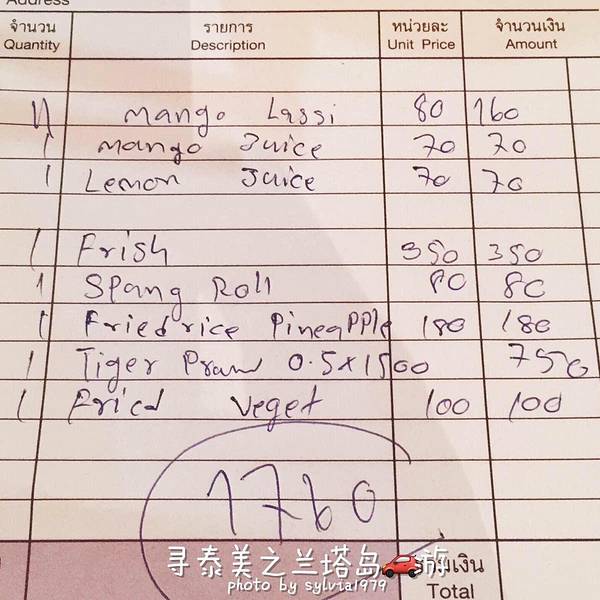 Address
จำนวน รายการ หน่วยละ จำนวนเงิน
Quantity Description Unit Price Amount
Mango Lassi 80 160
1 Mango Juice 70 70
1 Lemon Juice 70 70
1 Frish 350 350
1 Spang Roll 80 80
1 Fried rice Pineapple 180 180
1 Tiger Prawn 0.5x1500 750
1 Fried veget 100 100
1760
寻泰美之兰塔岛游
รวมเงิน
photo by sylvia1979
Total